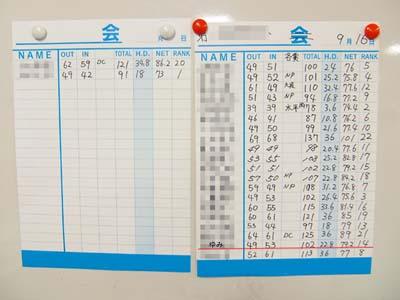 会
月 日
NAME OUT IN TOTAL H.D. NET RANK
62 59 DC 121 34.8 86.2 20
49 42 91 18 73 1
会
9月16日
NAME OUT IN TOTAL H.D. NET RANK
49 51 100 24 76 5
49 52 NP 101 25.2 75.8 4
49 61 大波 110 32.4 77.6 12
51 43 NP 94 16.8 77.2 9
78 3.6 74.4 2
46 41 87 10.8 76.2 6
49 50 99 21.6 77.4 10
69 68 137 36 101 22
49 49 98 20.4 77.6 11
53 55 108 25.2 82.8 17
51 51 102 22.8 79.2 15
57 50 NP 107 22.8 84.2 18
59 49 NP 108 31.2 76.8 7
49 53 102 26.4 75.6 3
60 55 115 33.6 81.4 16
60 61 121 36 85 19
53 44 97 18 79 13
64 61 DC 125 36 89 21
ゆみ 49 53 102 22.8 79.2 14
52 61 113 36 77 8